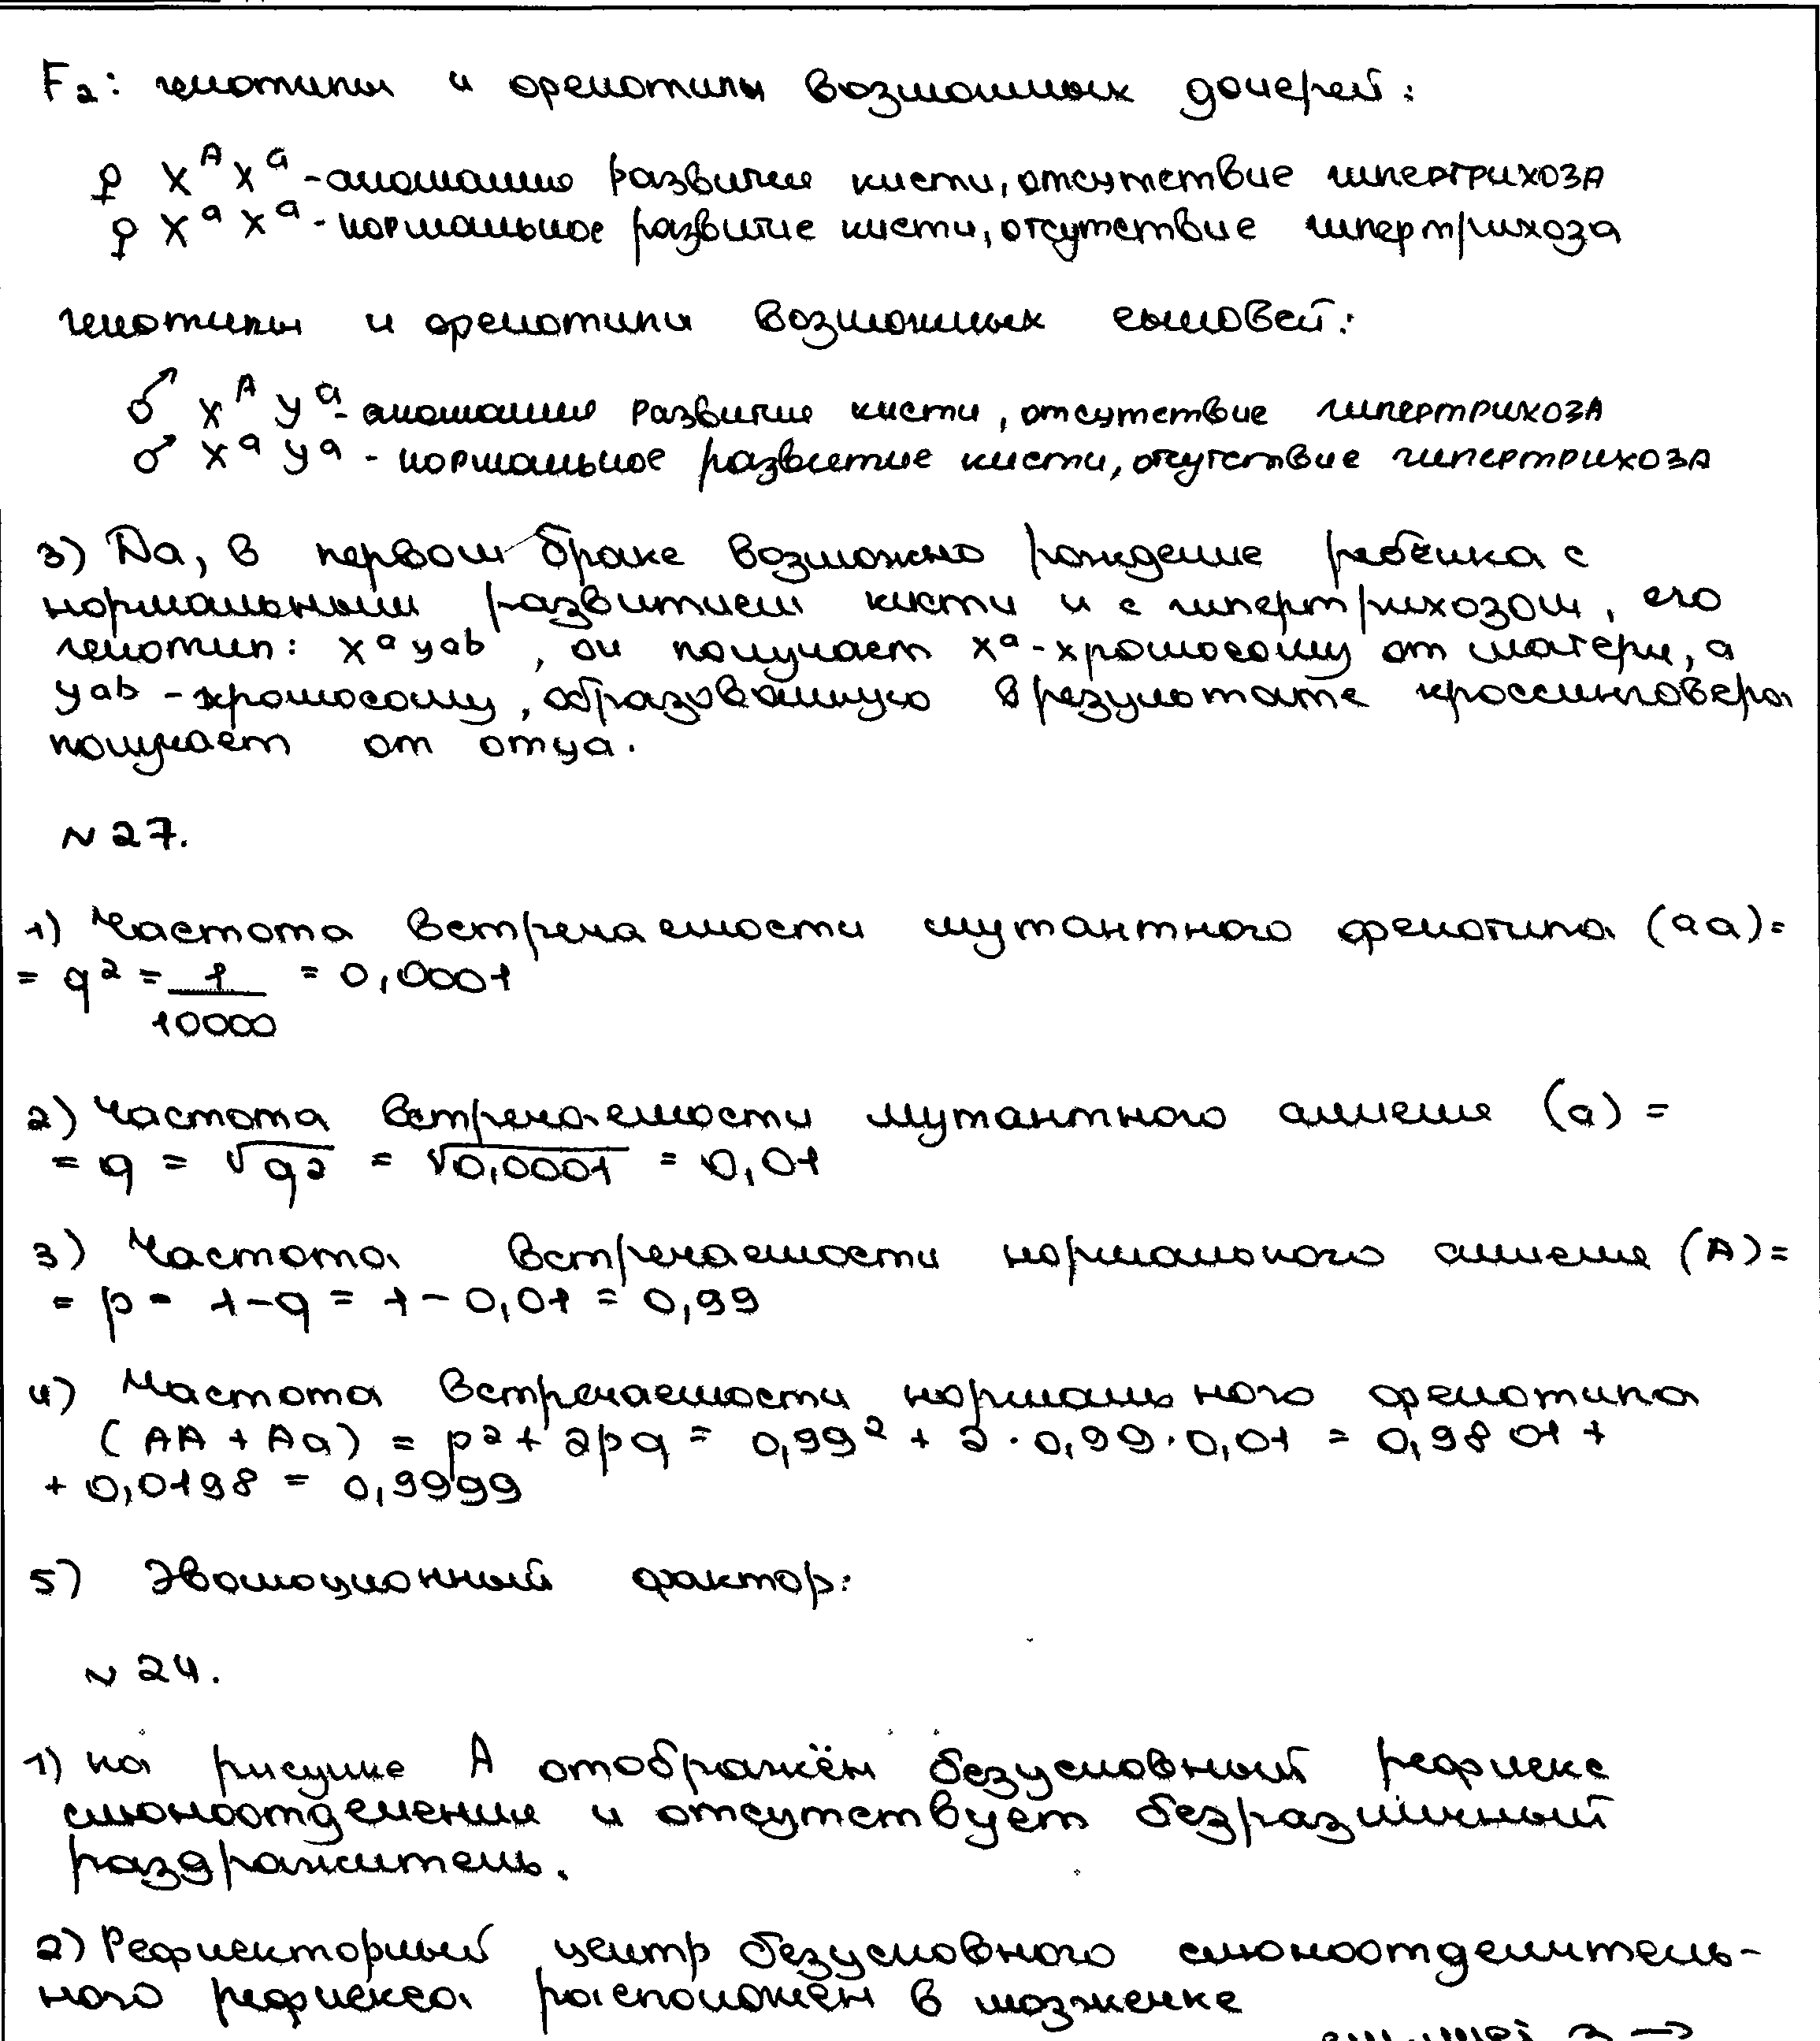 F₂: генотипы и фенотипы возможных дочерей:
♀ XᴬXᵃ - аномалия развития кисти, отсутствие гипертрихоза
♀ XᵃXᵃ - нормальное развитие кисти, отсутствие гипертрихоза
генотипы и фенотипы возможных сыновей:
♂ XᴬYᵃ - аномалия развития кисти, отсутствие гипертрихоза
♂ XᵃYᵃ - нормальное развитие кисти, отсутствие гипертрихоза
3) Да, в первом браке возможно рождение ребёнка с
нормальным развитием кисти и с гипертрихозом, его
генотип: XᵃYᵃᵇ, он получает Xᵃ-хромосому от матери, а
Yᵃᵇ - хромосому, образовавшуюся в результате кроссинговера
получает от отца.
N 27.
1) Частота встречаемости мутантного фенотипа (aa) =
= q² = 1/10000 = 0,0001
2) Частота встречаемости мутантного аллеля (a) =
= q = √q² = √0,0001 = 0,01
3) Частота встречаемости нормального аллеля (A) =
= p = 1-q = 1-0,01 = 0,99
4) Частота встречаемости нормального фенотипа
(AA + Aa) = p² + 2pq = 0,99² + 2·0,99·0,01 = 0,9801 +
+ 0,0198 = 0,9999
5) Эволюционный фактор:
N 24.
1) на рисунке А отображён безусловный рефлекс
слюноотделения и отсутствует безразличный
раздражитель.
2) Рефлекторный центр безусловного слюноотделитель-
ного рефлекса расположен в мозжечке